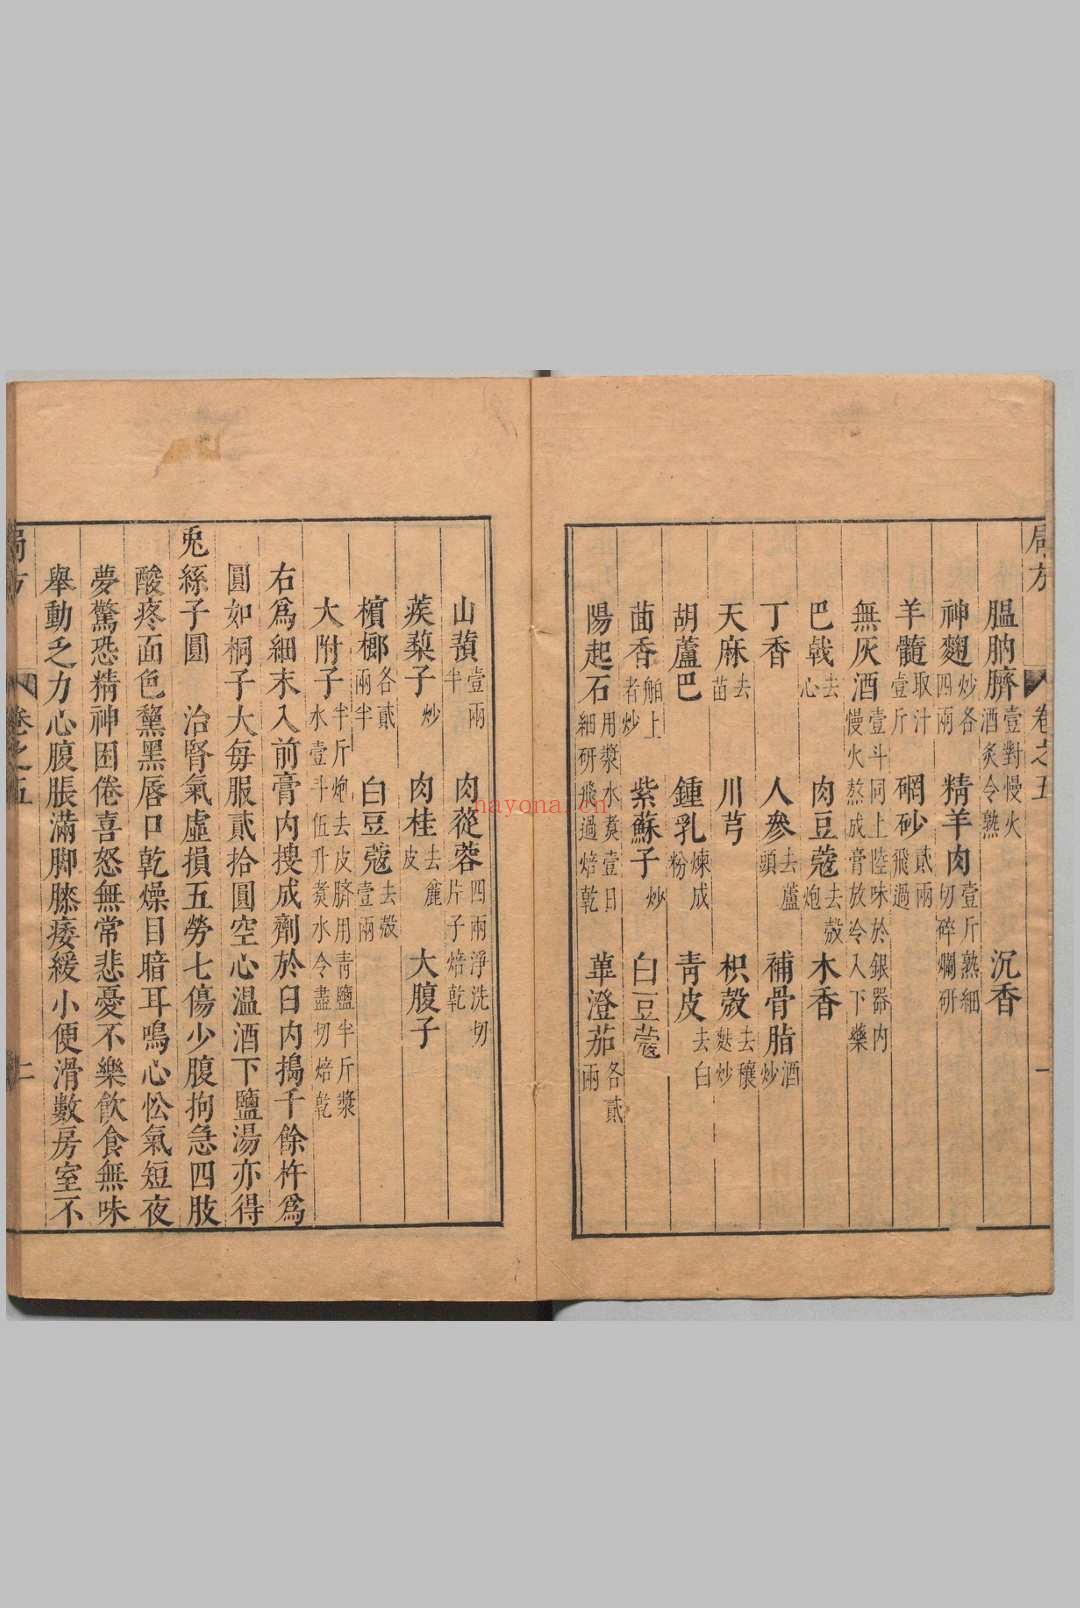 局方 卷之五 一
膃肭臍壹對慢火酒炙令熟 沉香
神麴炒各四兩 精羊肉壹斤熟細切碎爛研
羊髓取汁壹斤 硇砂貳兩飛過
無灰酒壹斗同上陸味於銀器內慢火熬成膏放冷入下藥
巴戟去心 肉豆蔻去殼炮 木香
丁香 人參去蘆頭 補骨脂酒炒
天麻去苗 川芎 枳殼去穰麩炒
胡蘆巴 鍾乳煉成粉 青皮去白
茴香舶上者炒 紫蘇子炒 白豆蔻
陽起石用漿水煑壹日細研飛過焙乾 蓽澄茄各貳兩
山藥壹兩半 肉蓯蓉四兩淨洗切片子焙乾
蒺蔾子炒 肉桂去麄皮 大腹子
檳榔各貳兩半 白豆蔻去殼壹兩
大附子半斤炮去皮臍用青鹽半斤漿水壹斗伍升煑水令盡切焙乾
右爲細末入前膏內搜成劑於臼內搗千餘杵爲
圓如桐子大每服貳拾圓空心溫酒下鹽湯亦得
兎絲子圓 治腎氣虛損五勞七傷少腹拘急四肢
酸疼面色黧黑唇口乾燥目暗耳鳴心忪氣短夜
夢驚恐精神困倦喜怒無常悲憂不樂飲食無味
舉動乏力心腹脹滿脚膝痿緩小便滑數房室不
局方 卷之五 二
nayona.cn